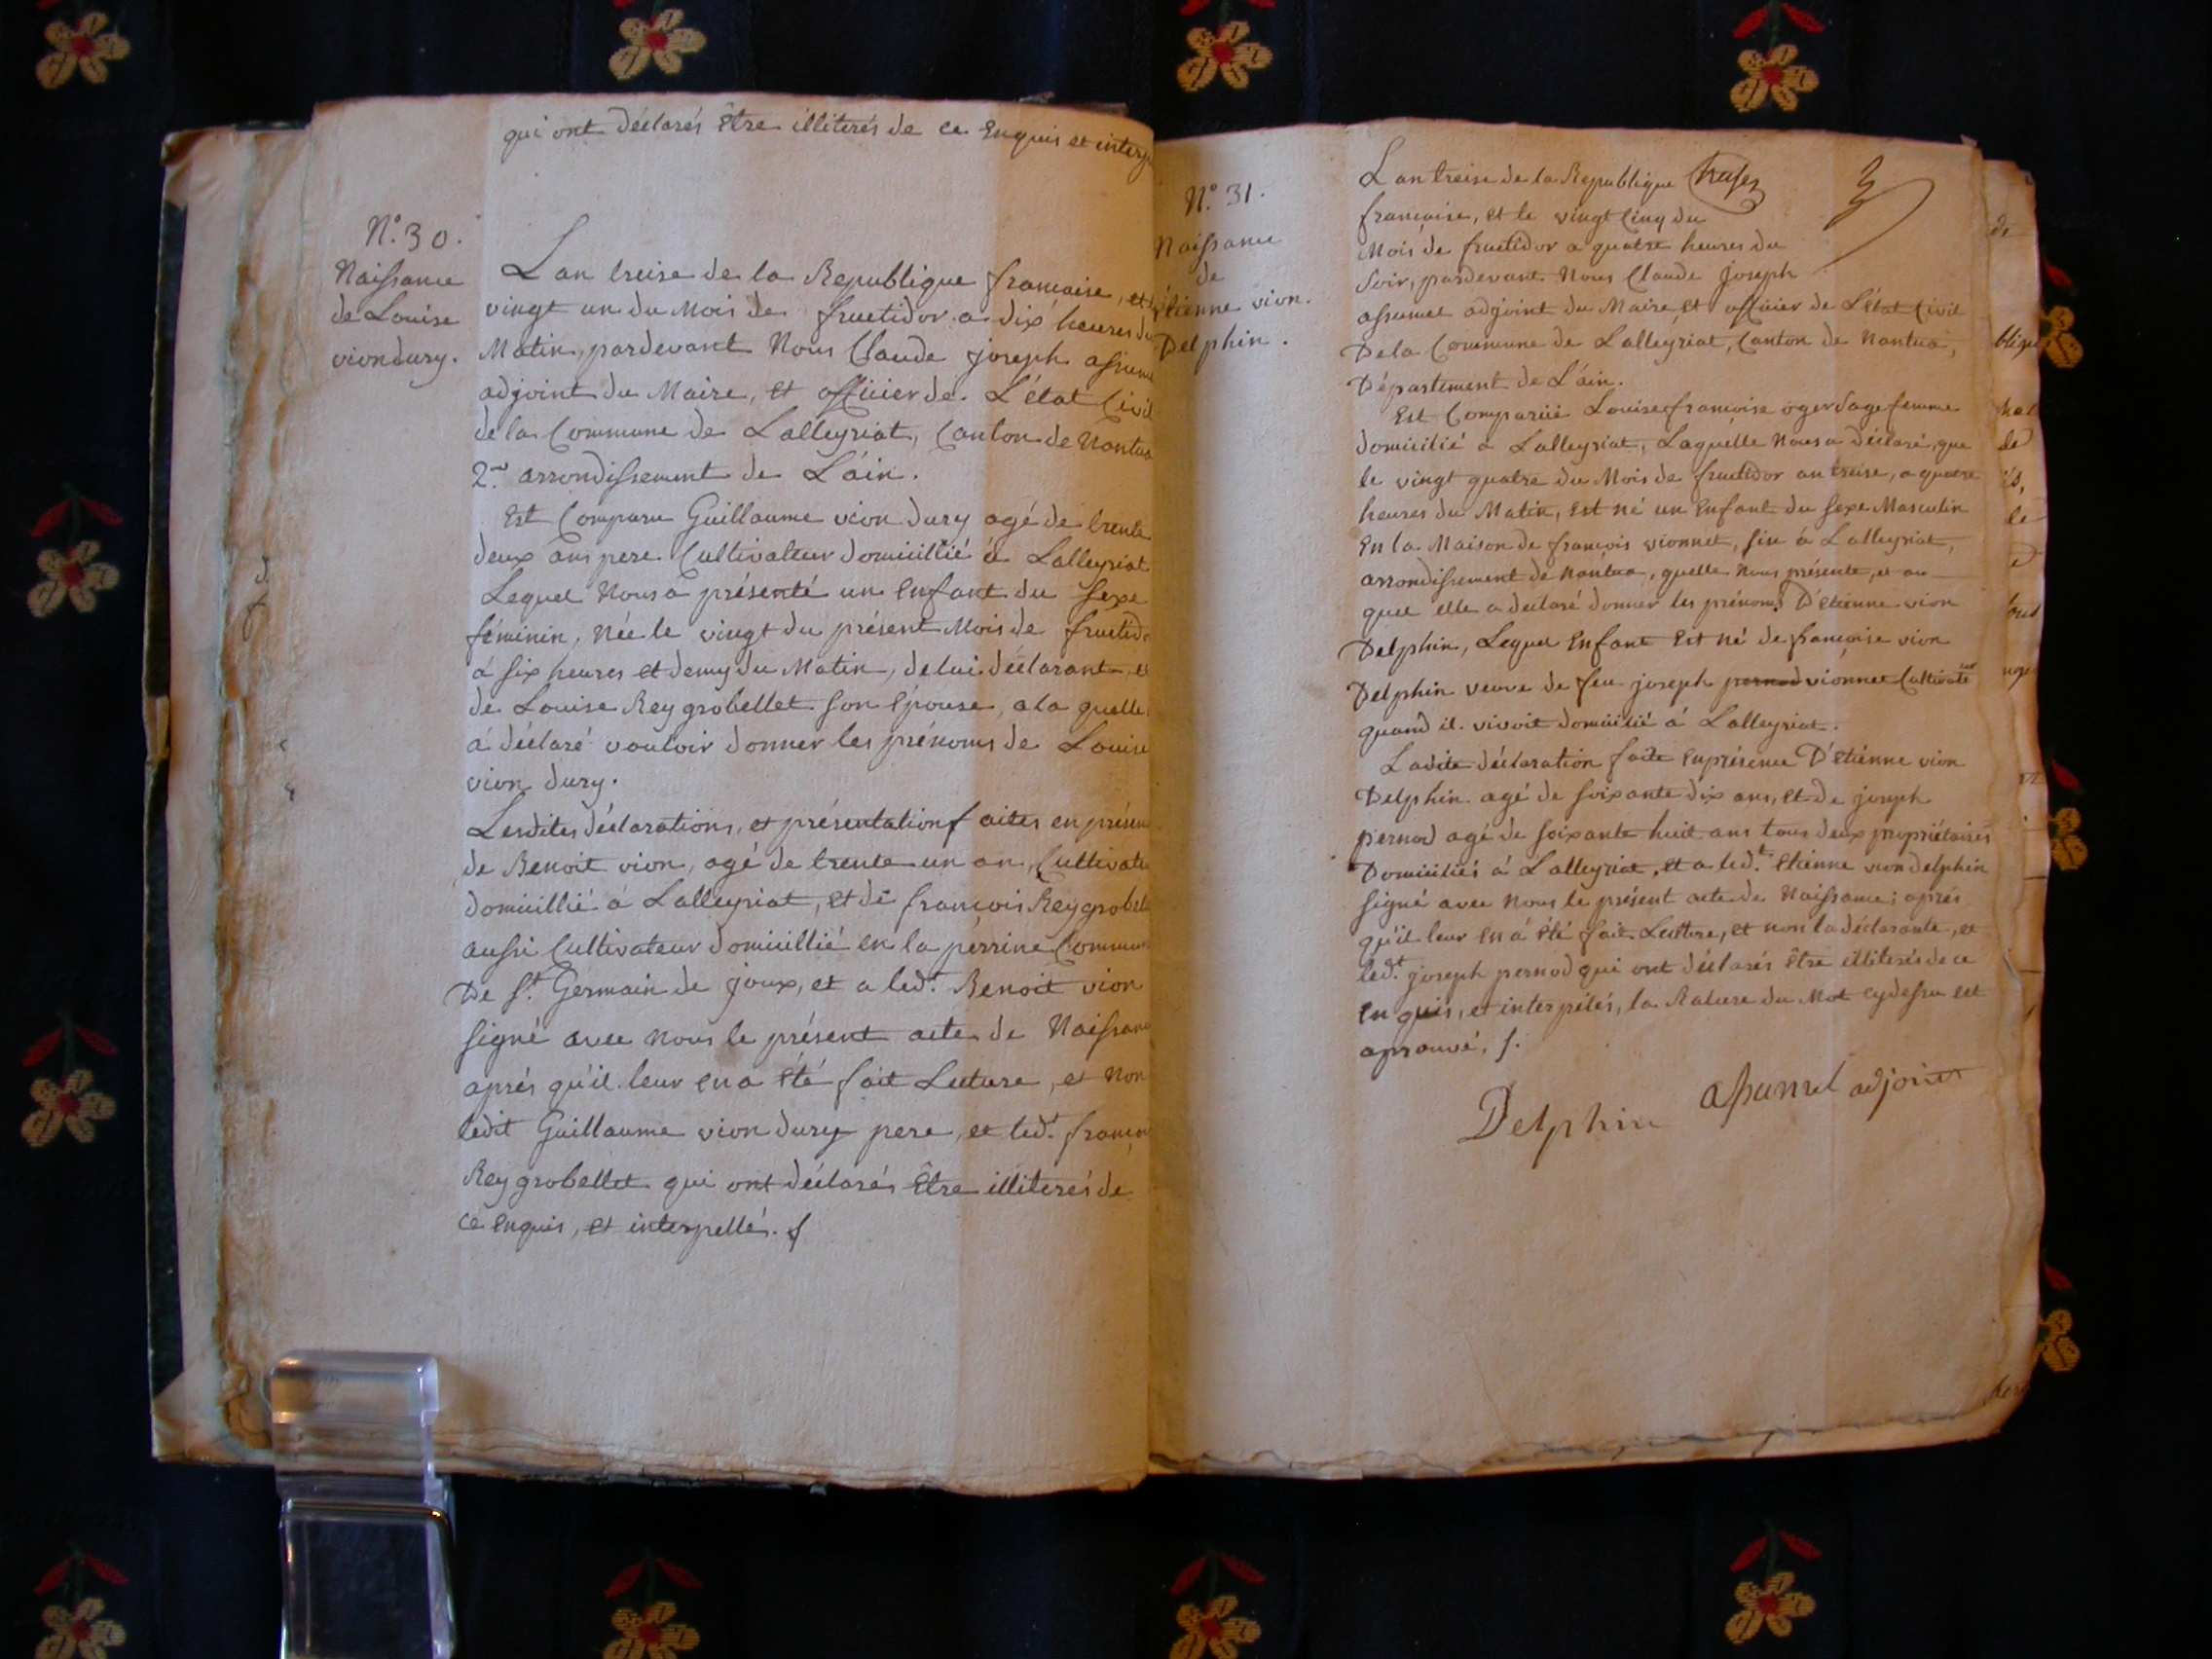 qui ont déclarés être illiterés de ce enquis et interp
N.º 30.
Naissance
de Louise
viondury.
L'an treise de la Republique francaise, et
vingt un du Mois de fructidor a dix heures du
Matin, pardevant Nous Claude joseph assume
adjoint du Maire, et officier de L'état Civil
de la Commune de Lalleyriat, Canton de Nantua
2.me arrondissement de L'ain.
Est Comparu Guillaume vion dury agé de trente
deux ans pere Cultivateur domicillié à Lalleyriat
Lequel Nous a présenté un enfant du sexe
féminin, Née le vingt du présent Mois de fructido
à six heures et demy du Matin, de lui déclarant et
de Louise Rey grobellet son épouse, a la quelle
a déclaré vouloir donner les prénoms de Louise
vion dury.
Lesdites déclarations, et présentation faites en présen
de Benoit vion, agé de trente un an, Cultivate
domicillié à Lalleyriat, et de françois Rey grobel
aussi Cultivateur domicillié en la perrine Commun
De S.t Germain de joux, et a led.t Benoit vion
signé avec nous le présent acte de Naissanc
après qu'il leur en a été fait Lecture, et Non
ledit Guillaume vion dury pere, et led.t françoi
Rey grobellet qui ont déclarés être illiterés de
ce enquis, et interpellés. /.
N.º 31.
Naissance
de
étienne vion.
Delphin.
L'an treise de la Republique
francaise, et le vingt Cinq du
Mois de fructidor a quatre heures du
soir, pardevant Nous Claude joseph
assumel adjoint du Maire et officier de L'état Civil
De la Commune de Lalleyriat, Canton de Nantua,
Département de L'ain.
Est Comparüe Louise francoise oger sage femme
domicilié à Lalleyriat, Laquelle Nous a déclaré, que
le vingt quatre du Mois de fructidor an treise, a quatre
heures du Matin, est né un enfant du sexe Masculin
en la Maison de françois vionnet, sise à Lalleyriat,
arrondissement de Nantua, quelle Nous présente, et au
quel elle a declaré donner les prénoms D'etienne vion
Delphin, Lequel enfant est né de francoise vion
Delphin veuve de feu joseph pernod vionnet Cultivateur
quand il vivoit domicilié à Lalleyriat.
Ladite déclaration faite en présence D'etienne vion
Delphin agé de soixante dix ans, et de joseph
pernod agé de soixante huit ans tous deux propriétaires
Domiciliés à Lalleyriat, et a led.t etienne vion delphin
signé avec nous le présent acte de Naissance; après
qu'il leur en a été fait Lecture, et non la déclarante, et
led.t joseph pernod qui ont déclarés être illiterés de ce
enquis, et interpélés, la Rature du Mot cy dessu est
aprouvé. /.
Delphin assumel adjoint